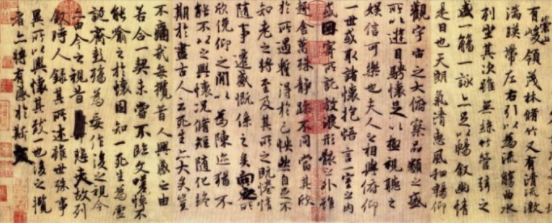 有崇山峻領茂林脩竹又有清流激
湍暎帶左右引以為流觴曲水
列坐其次雖無絲竹管弦之
盛一觴一詠亦足以暢敘幽情
是日也天朗氣清惠風和暢仰
觀宇宙之大俯察品類之盛
所以遊目騁懷足以極視聽之
娛信可樂也夫人之相與俯仰
一世或取諸懷抱悟言一室之內
或因寄所託放浪形骸之外雖
趣舍萬殊靜躁不同當其欣
於所遇暫得於己怏然自足不
知老之將至及其所之既惓情
隨事遷感慨係之矣向之所
欣俛仰之閒以為陳迹猶不
能不以之興懷況脩短隨化終
期於盡古人云死生亦大矣豈
不痛哉每攬昔人興感之由
若合一契未嘗不臨文嗟悼不
能喻之於懷固知一死生為虛
誕齊彭殤為妄作後之視今
亦由今之視昔悲夫故列
敘時人錄其所述雖世殊事
異所以興懷其致一也後之攬
者亦將有感於斯文